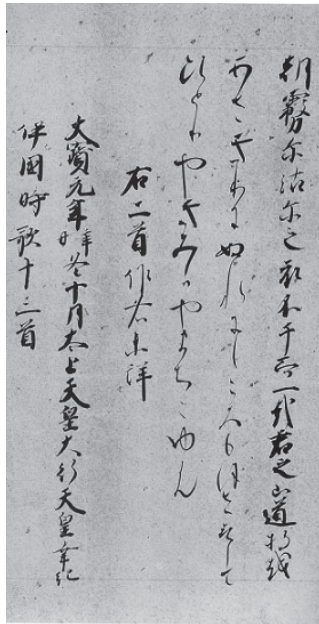 朝霧尓沾尓之衣不干而一哉君之山道将越
あさきりにぬれにしころもほさすして
ひとりやきみかやまちこゆらん
右二首作者未詳
大寳元年辛丑冬十月太上天皇大行天皇幸紀
伊國時歌十三首